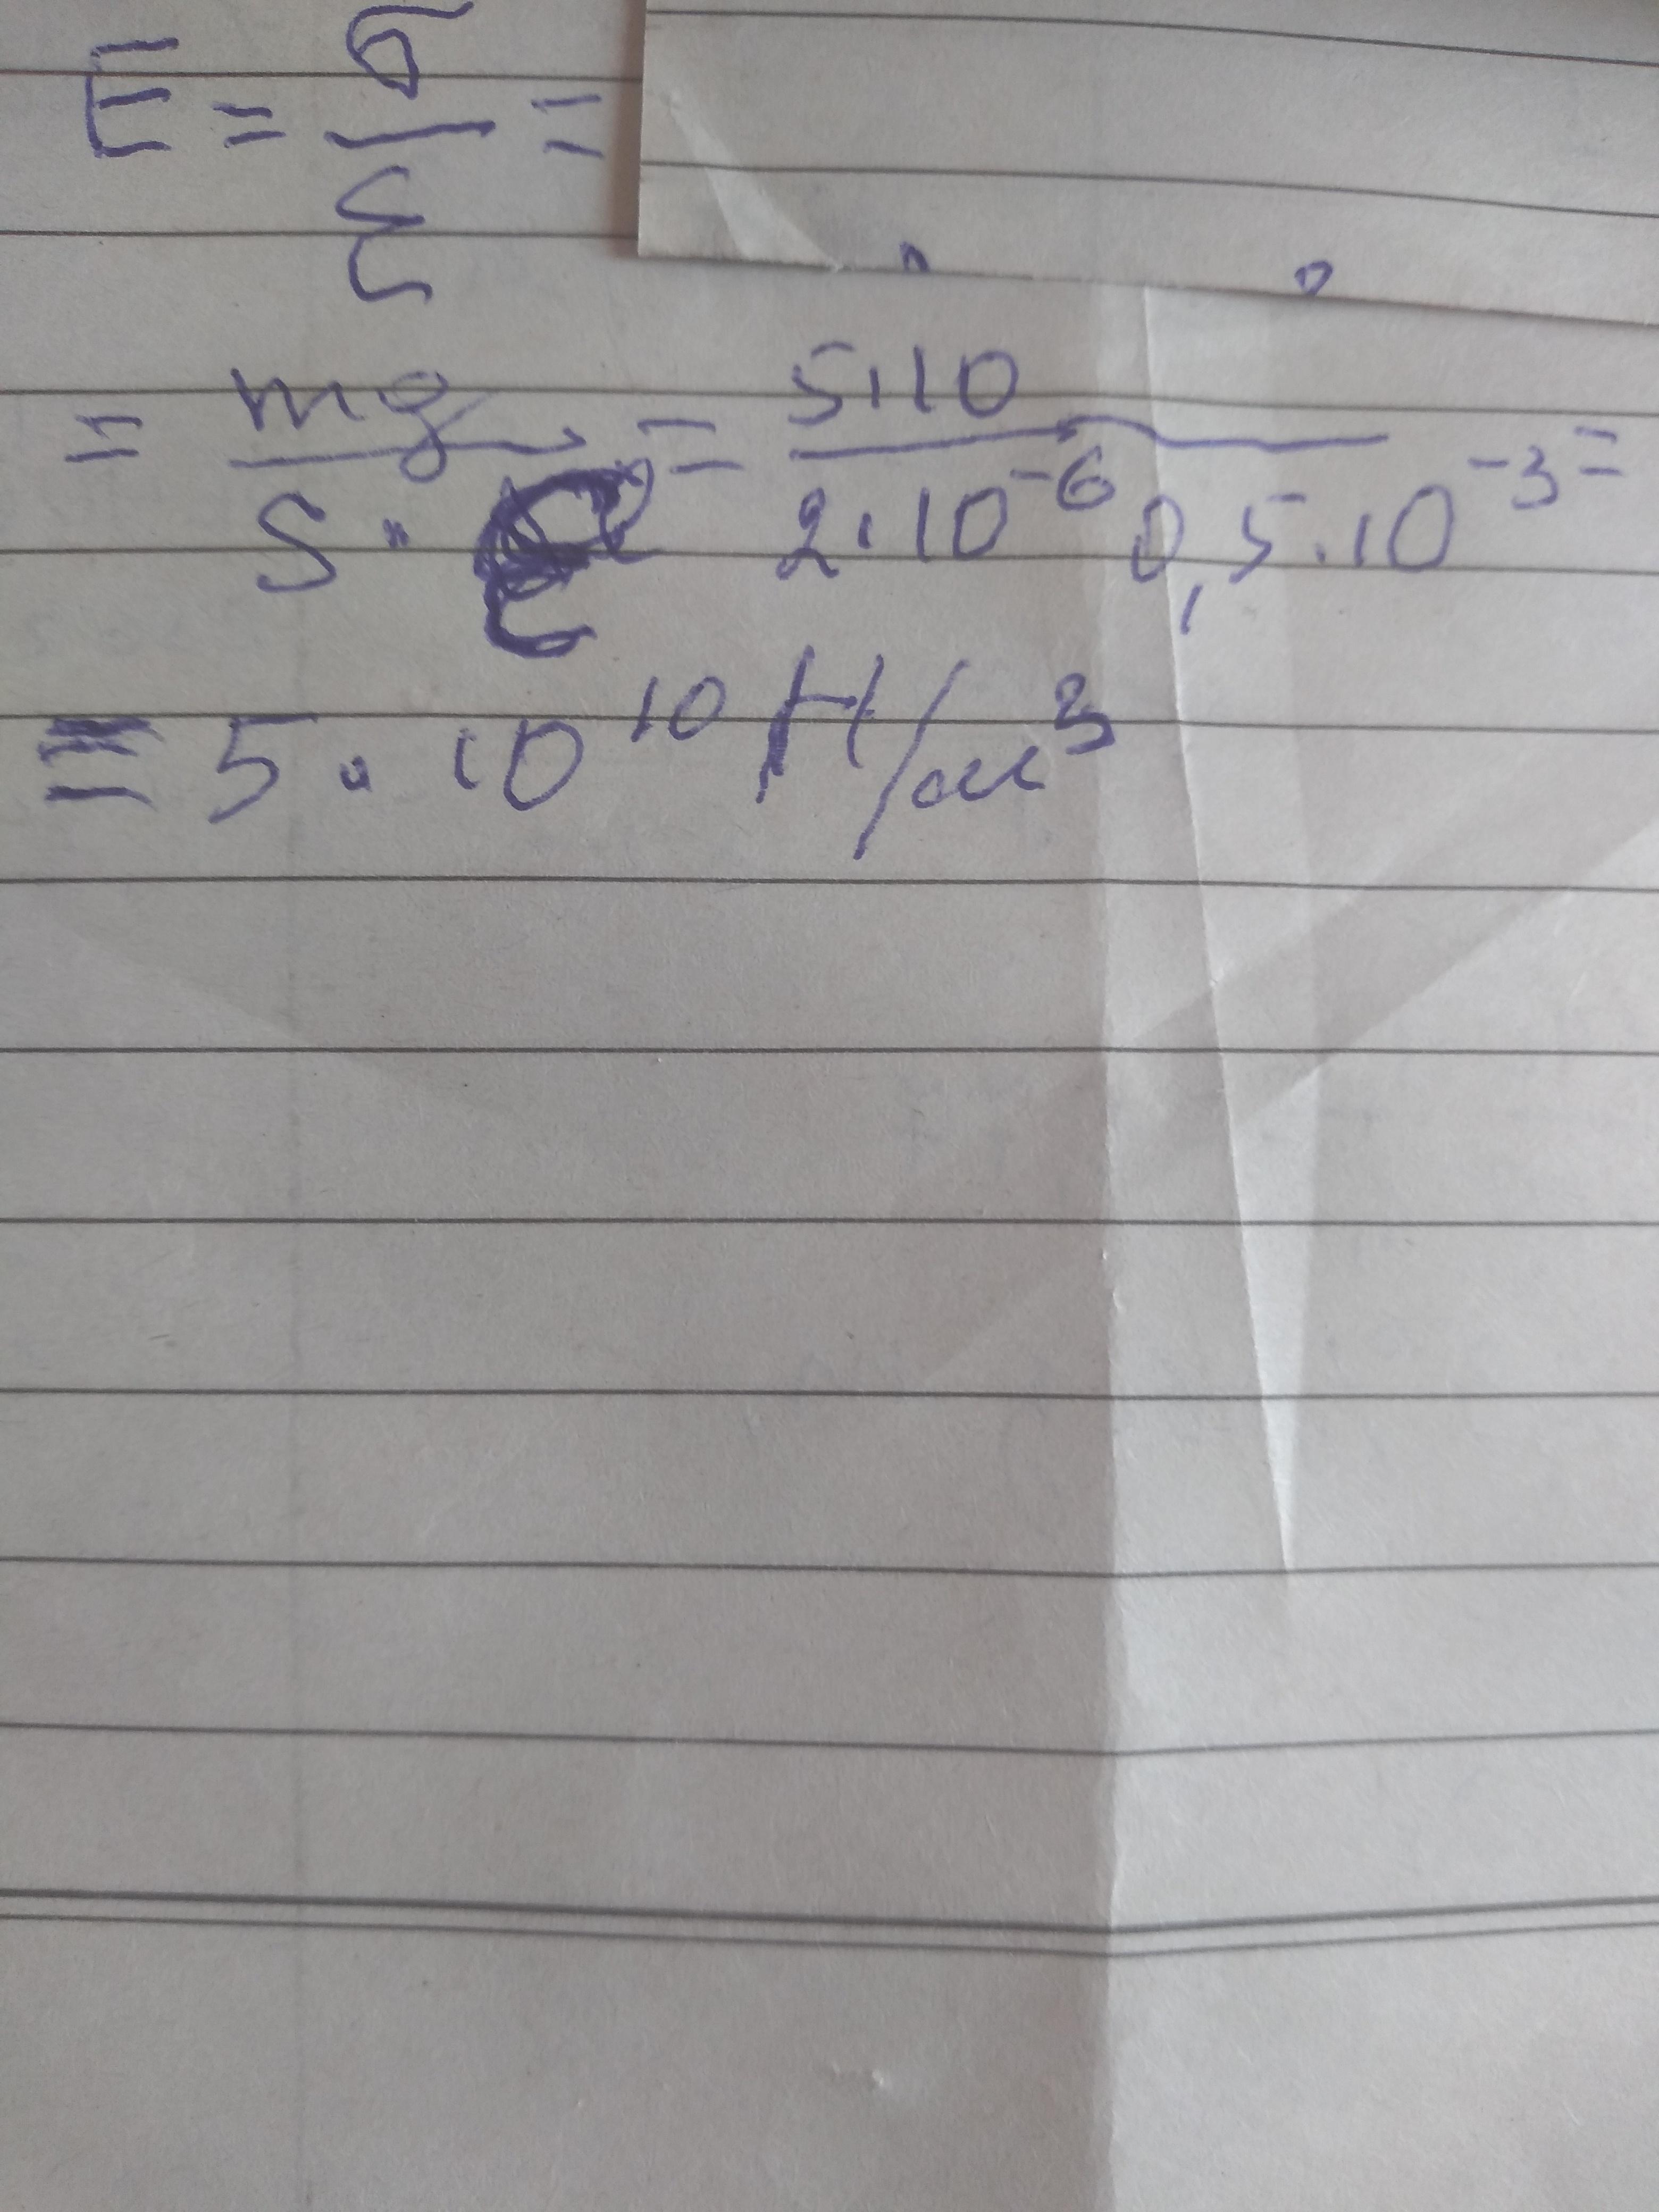 E = σ/ε =
= mg/(S · ε) = 5·10/(2·10⁻⁶ 0,5·10⁻³) =
= 5 · 10¹⁰ Н/м³